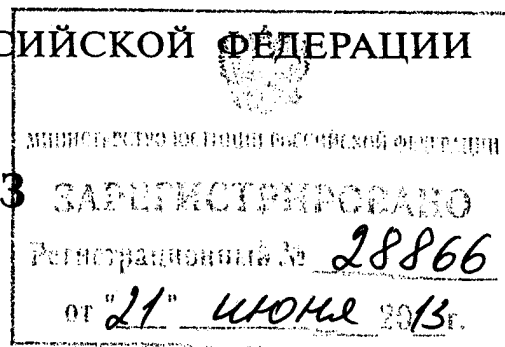 СИЙСКОЙ ФЕДЕРАЦИИ
МИНИСТЕРСТВО ЮСТИЦИИ РОССИЙСКОЙ ФЕДЕРАЦИИ
З ЗАРЕГИСТРИРОВАНО
Регистрационный № 28866
от "21" июня 2013г.